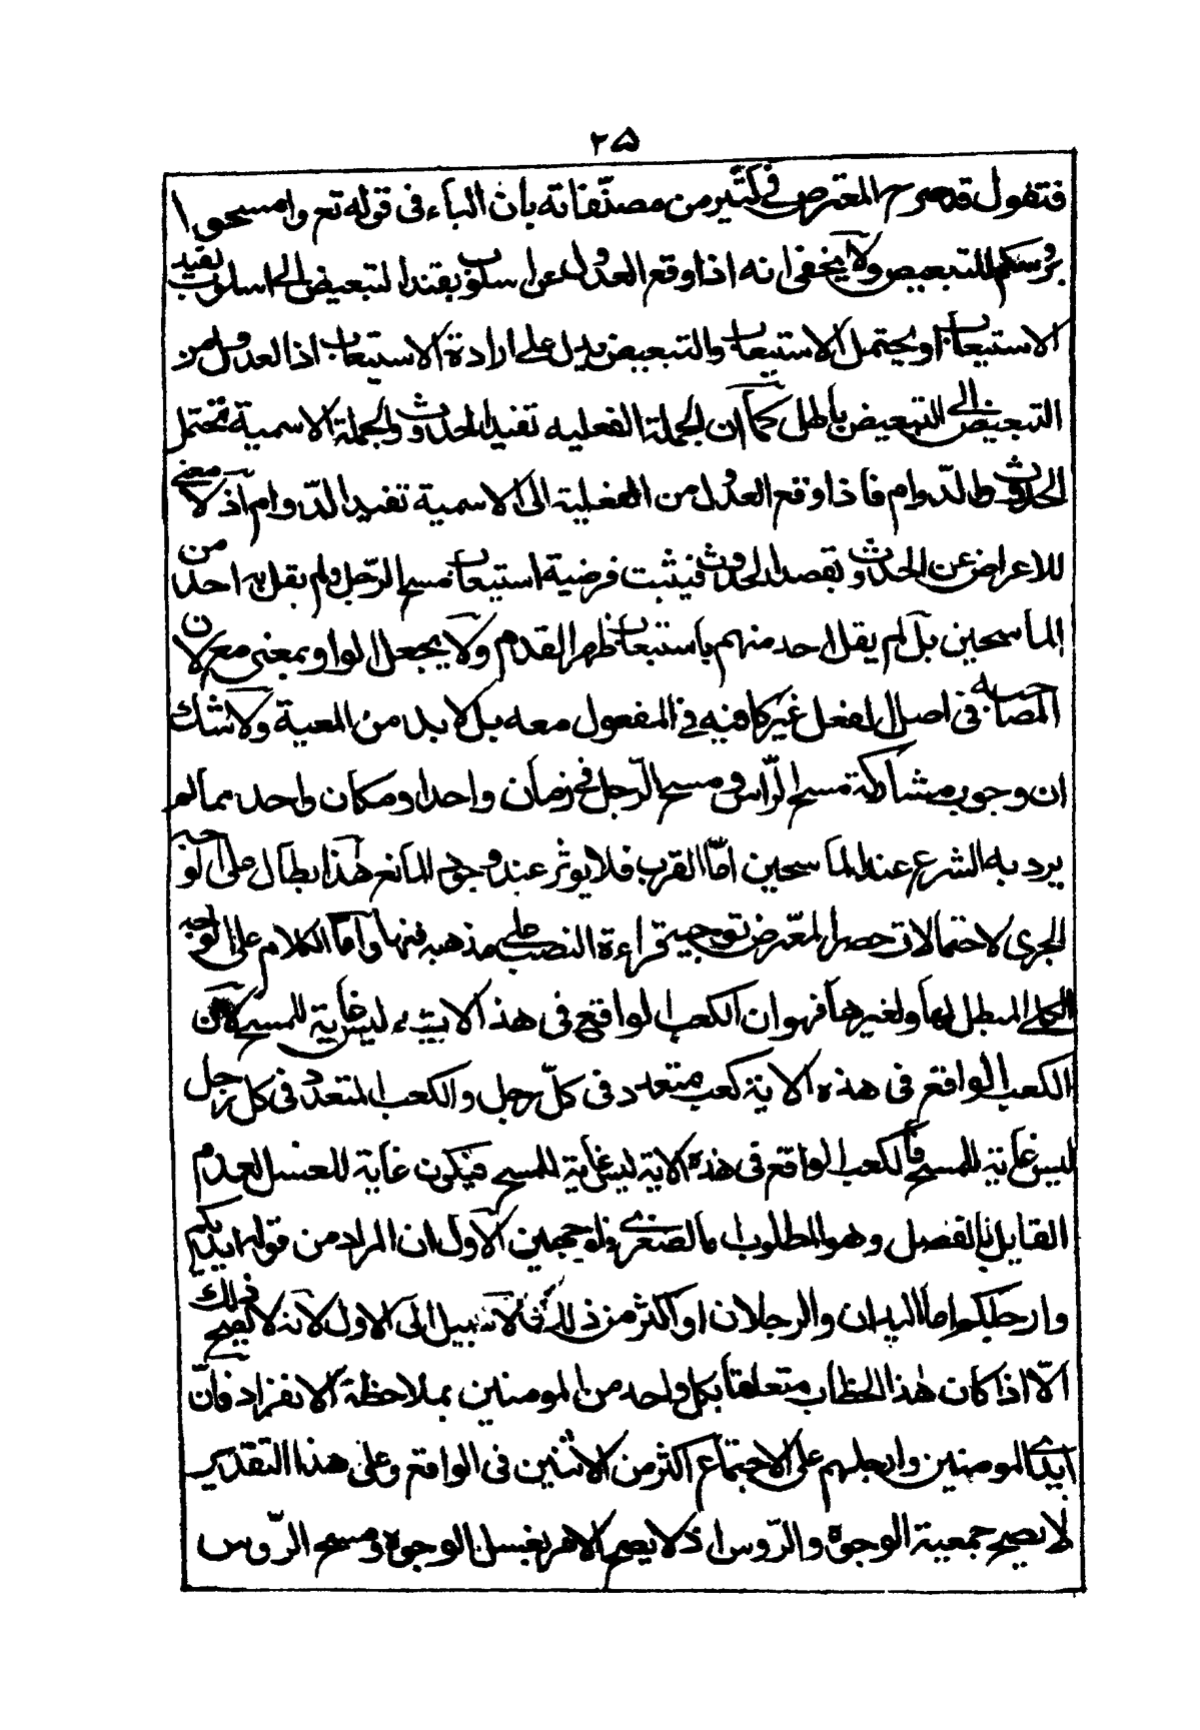 ٢٥
فنقول قد صرح المعترض في كثير من مصنّفاته بان الباء فى قوله تع وامسحوا
برؤسكم للتبعيض ولا يخفى انه اذا وقع العدول عن اسلوب يفيد التبعيض الى اسلوب يفيد
الاستيعاب او يحتمل الاستيعاب والتبعيض يدل على ارادة الاستيعاب اذ العدول من
التبعيض الى التبعيض باطل كما ان الجملة الفعليه تفيد الحدوث والجملة الاسمية تحتمل
الحدوث والدّوام فاذا وقع العدول من الفعلية الى الاسمية تفيد الدّوام اذ لا معنى
للاعراض عن الحدوث وتقصد الحدوث فيثبت فرضية استيعاب مسح الرّجل ولم يقل به احد من
الماسحين بل لم يقل احد منهم باستيعاب ظهر القدم ولا يجعل الواو بمعنى مع لان
المصاحبة فى اصل الفعل غير كافية في المفعول معه بل لا بد من المعية ولا شك
ان وجوب مشاركة مسح الرّاس ومسح الرّجل فى زمان واحد او مكان واحد مما لم
يرد به الشرع عند الماسحين امّا القرب فلا يوثر عند وجود المانع هذا ابطال على الوجه
الجرى لاحتمالات حصر المعترض توجيه قراءة النصب على مذهبه فيها واما الكلام على الوجه
الكلى المبطل لها ولغيرها فهو ان الكعب الواقع فى هذه الاية ليس غاية للمسح لان
الكعب الواقع فى هذه الاية كعب متعدد فى كلّ رجل والكعب المتعدد فى كل رجل
ليس غاية للمسح فالكعب الواقع فى هذه الاية ليس غاية للمسح فيكون غاية للغسل لعدم
القايل بالفصل وهو المطلوب اما الصغرى فلوجهين الاول ان المراد من قوله ايديكم
وارجلكم اما اليدان والرجلان او اكثر من ذلك فلا سبيل الى الاول لانه لا يصح ذلك
الّا اذا كان هذا الخطاب متعلقا بكل واحد من المومنين بملاحظة الانفراد فانّ
ايدى المومنين وارجلهم على الاجتماع اكثر من الاثنين فى الواقع وعلى هذا التقدير
لا يصح جمعية الوجوه والرّوس اذ لا يصح الامر بغسل الوجوه ومسح الرّوس